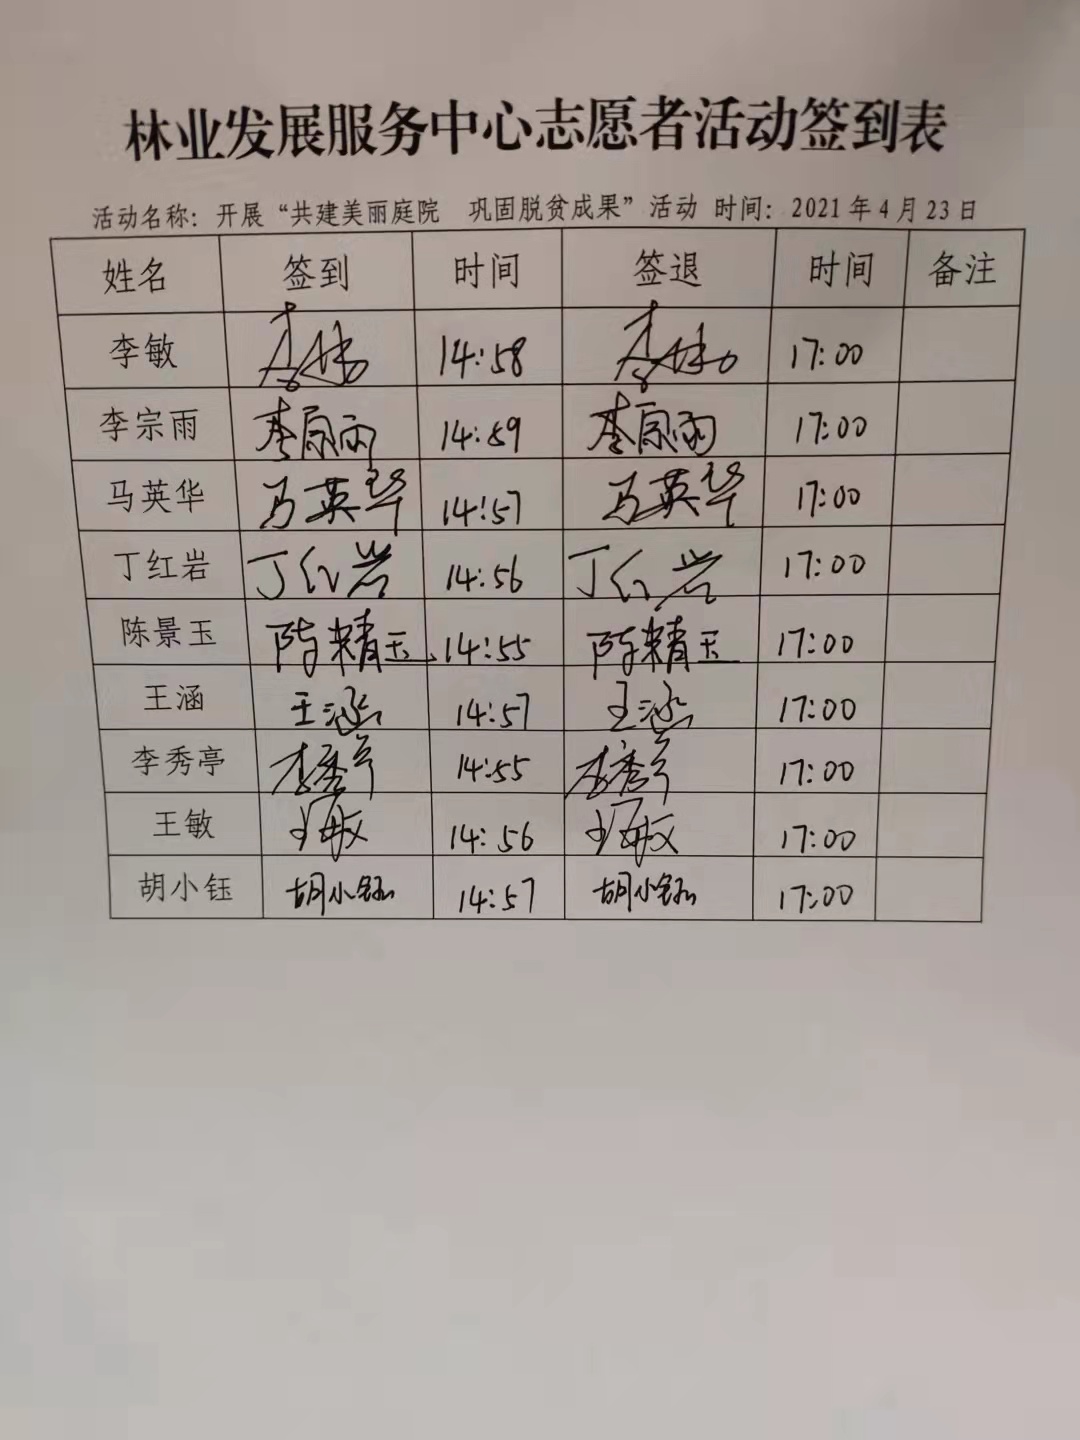 林业发展服务中心志愿者活动签到表
活动名称：开展“共建美丽庭院　巩固脱贫成果”活动 时间：2021年4月23日
姓名 签到 时间 签退 时间 备注
李敏 李敏 14:58 李敏 17:00
李宗雨 李宗雨 14:59 李宗雨 17:00
马英华 马英华 14:57 马英华 17:00
丁红岩 丁红岩 14:56 丁红岩 17:00
陈景玉 陈精玉 14:55 陈精玉 17:00
王涵 王涵 14:57 王涵 17:00
李秀亭 李秀亭 14:55 李秀亭 17:00
王敏 王敏 14:56 王敏 17:00
胡小钰 胡小钰 14:57 胡小钰 17:00